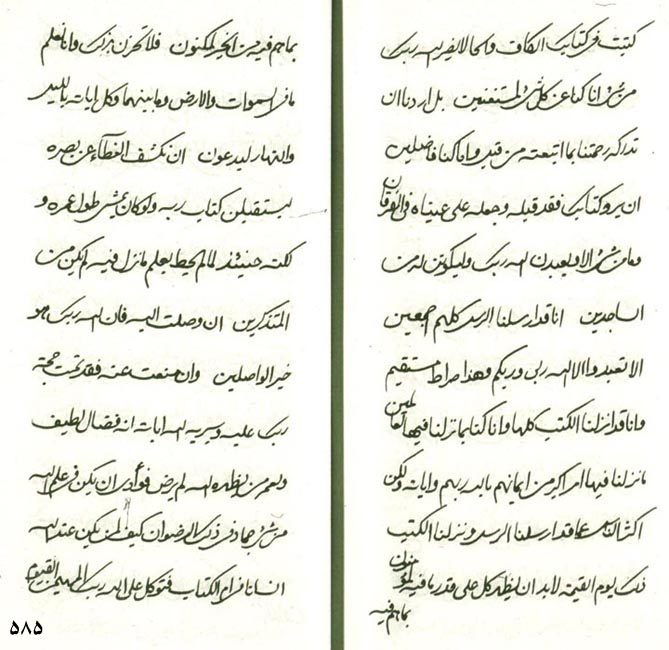 كتبت في كتابك الكاف والحا لا يصير الله ربك
من شيء وانا كنا عن كل شيء لمستغنين بل اردنا ان
تدركه رحمتنا بما اتبعته من قبل وانا كنا فاضلين
ان يرد كتابك فقد قبله وجعله على عيناه في الفرقان
وما من شيء الا ويعبدن الله ربك وليكونن له من
الساجدين انا قد ارسلنا الرسل كلهم اجمعين
الا تعبدوا الا الله ربي وربكم وهذا صراط مستقيم
وانا قد انزلنا الكتب كلها وانا كنا بما نزلنا فيها لعالمين
ما نزلنا فيها امر اكبر من ايمانهم بالله ربهم واياته ولكن
اكثر الناس قد ارسلنا الرسل ونزلنا الكتب
ذلك يوم القيمة لا بد ان يظهر كل على قدر ما فيه
بما هم فيه
بما هم فيه من الحق لمكنون فلا تحزن بذلك وانا نعلم
ما في السموات والارض وما بينهما وكل اياته بالليل
والنهار ليدعون ان نكشف الغطاء عن بصره
ليستقبلن كتاب ربه ولو كان يمشي طول عمره و
لكنه حينئذ لما لم يحط بعلم ما نزل فيه لم يكن من
المتذكرين ان وصلت اليه فان الله ربك هو
خير الواصلين وان منعت عنه فقد تمت حجة
ربك عليه وسيريه الله اياته انه فضال لطيف
ولعمر من يظهره الله لم يرض فؤادي ان يكن في علم الله
من شيء جماد في ذلك الرضوان كيف لمن يكن عند الله
انسانا في ام الكتاب فتوكل على الله ربك المهيمن القيوم
٥٨٥